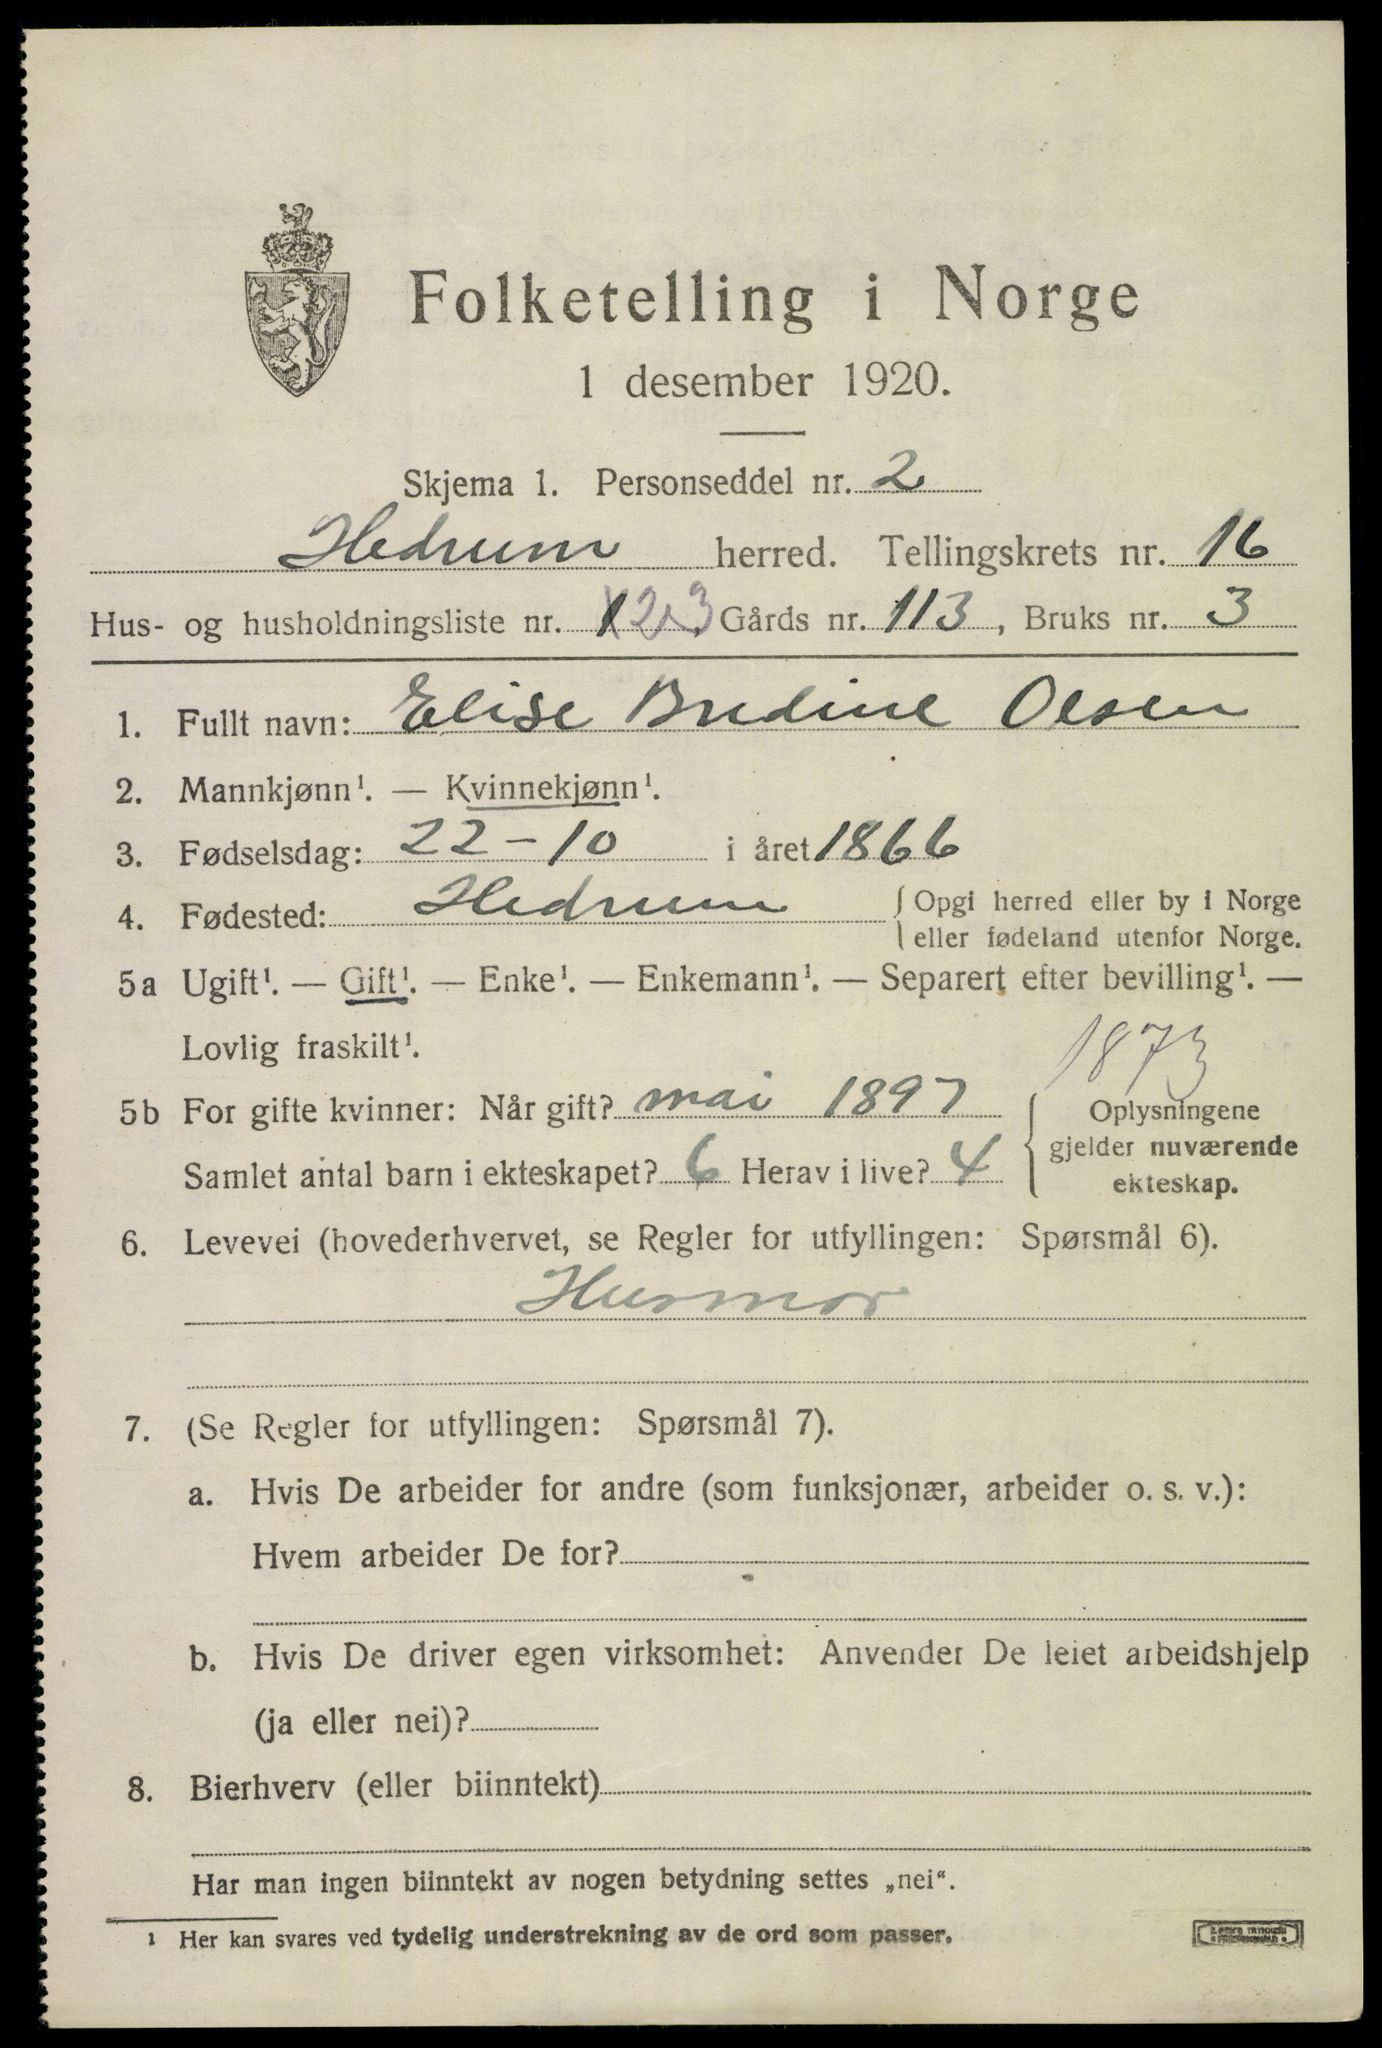 Folketelling i Norge
1 desember 1920.
Skjema 1. Personseddel nr. 2
Hedrum herred. Tellingskrets nr. 16
Hus- og husholdningsliste nr. 1 23 Gårds nr. 113, Bruks nr. 3
1. Fullt navn: Elise Bredine Olsen
2. Mannkjønn¹. — Kvinnekjønn¹.
3. Fødselsdag: 22-10 i året 1866
4. Fødested: Hedrum { Opgi herred eller by i Norge
eller fødeland utenfor Norge.
5a Ugift¹. — Gift¹. — Enke¹. — Enkemann¹. — Separert efter bevilling¹. —
Lovlig fraskilt¹.
1873
5b For gifte kvinner: Når gift? mai 1897 { Oplysningene
gjelder nuværende
Samlet antal barn i ekteskapet? 6 Herav i live? 4
ekteskap.
6. Levevei (hovederhvervet, se Regler for utfyllingen: Spørsmål 6).
Husmor
7. (Se Regler for utfyllingen: Spørsmål 7).
a. Hvis De arbeider for andre (som funksjonær, arbeider o. s. v.):
Hvem arbeider De for?
b. Hvis De driver egen virksomhet: Anvender De leiet arbeidshjelp
(ja eller nei)?
8. Bierhverv (eller biinntekt)
Har man ingen biinntekt av nogen betydning settes „nei“.
¹ Her kan svares ved tydelig understrekning av de ord som passer.